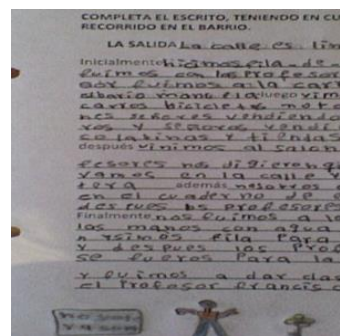 COMPLETA EL ESCRITO, TENIENDO EN CU
RECORRIDO EN EL BARRIO.
LA SALIDA La calle es lin
Inicialmente hicimos fila de
fuimos con las profesor
fuimos a la carr
luego vim
carros bicicletas moto
nes señores vendiendo
ros y señoras vendi
y tiendas
después vinimos al salon
fesores nos digieron q
vamos en la calle y
tera además nosotros
en el cuaderno de
despues los profesores
Finalmente nos fuimos a la
las manos con agua
fila para
y despues los prof
se fueros para la
y fuimos a dar clas
el profesor francis c